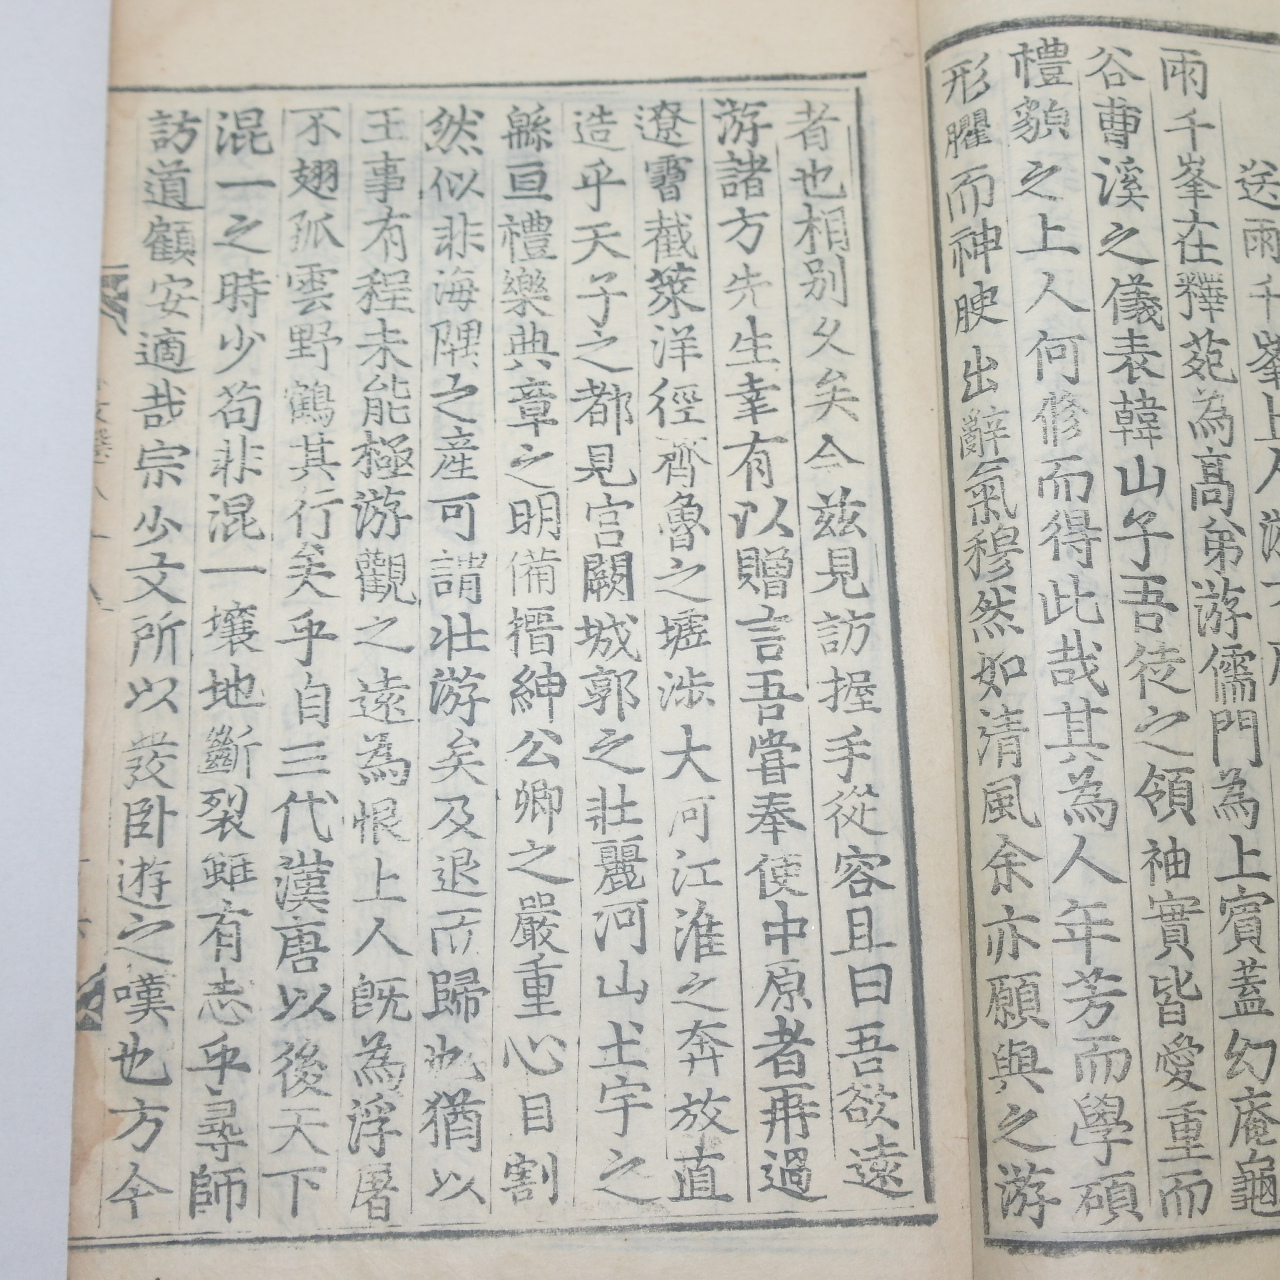 送雨千峯上人游方
雨千峯在釋苑為高弟游儒門為上賓蓋幻庵龜
谷曹溪之儀表韓山子吾徒之領袖實皆愛重而
禮貌之上人何修而得此哉其為人年芳而學碩
形臞而神腴出辭氣穆然如清風余亦願與之游
者也相別久矣今玆見訪握手從容且曰吾欲遠
游諸方先生幸有以贈言吾嘗奉使中原者再過
遼霫截萊洋徑齊魯之墟涉大河江淮之奔放直
造乎天子之都見宮闕城郭之壯麗河山土宇之
緜亘禮樂典章之明備搢紳公卿之嚴重心目割
然似非海隅之産可謂壯游矣及退而歸也猶以
王事有程未能極游觀之遠為恨上人旣為浮屠
不翅孤雲野鶴其行矣乎自三代漢唐以後天下
混一之時少苟非混一壤地斷裂雖有志乎尋師
訪道顧安適哉宗少文所以發臥遊之嘆也方今